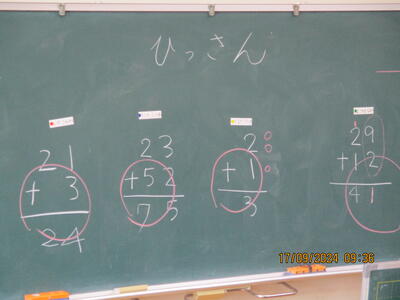 ひっさん
21
+ 3
24
23
+52
75
2
+ 1
3
29
+12
41
17/09/2024 09:36